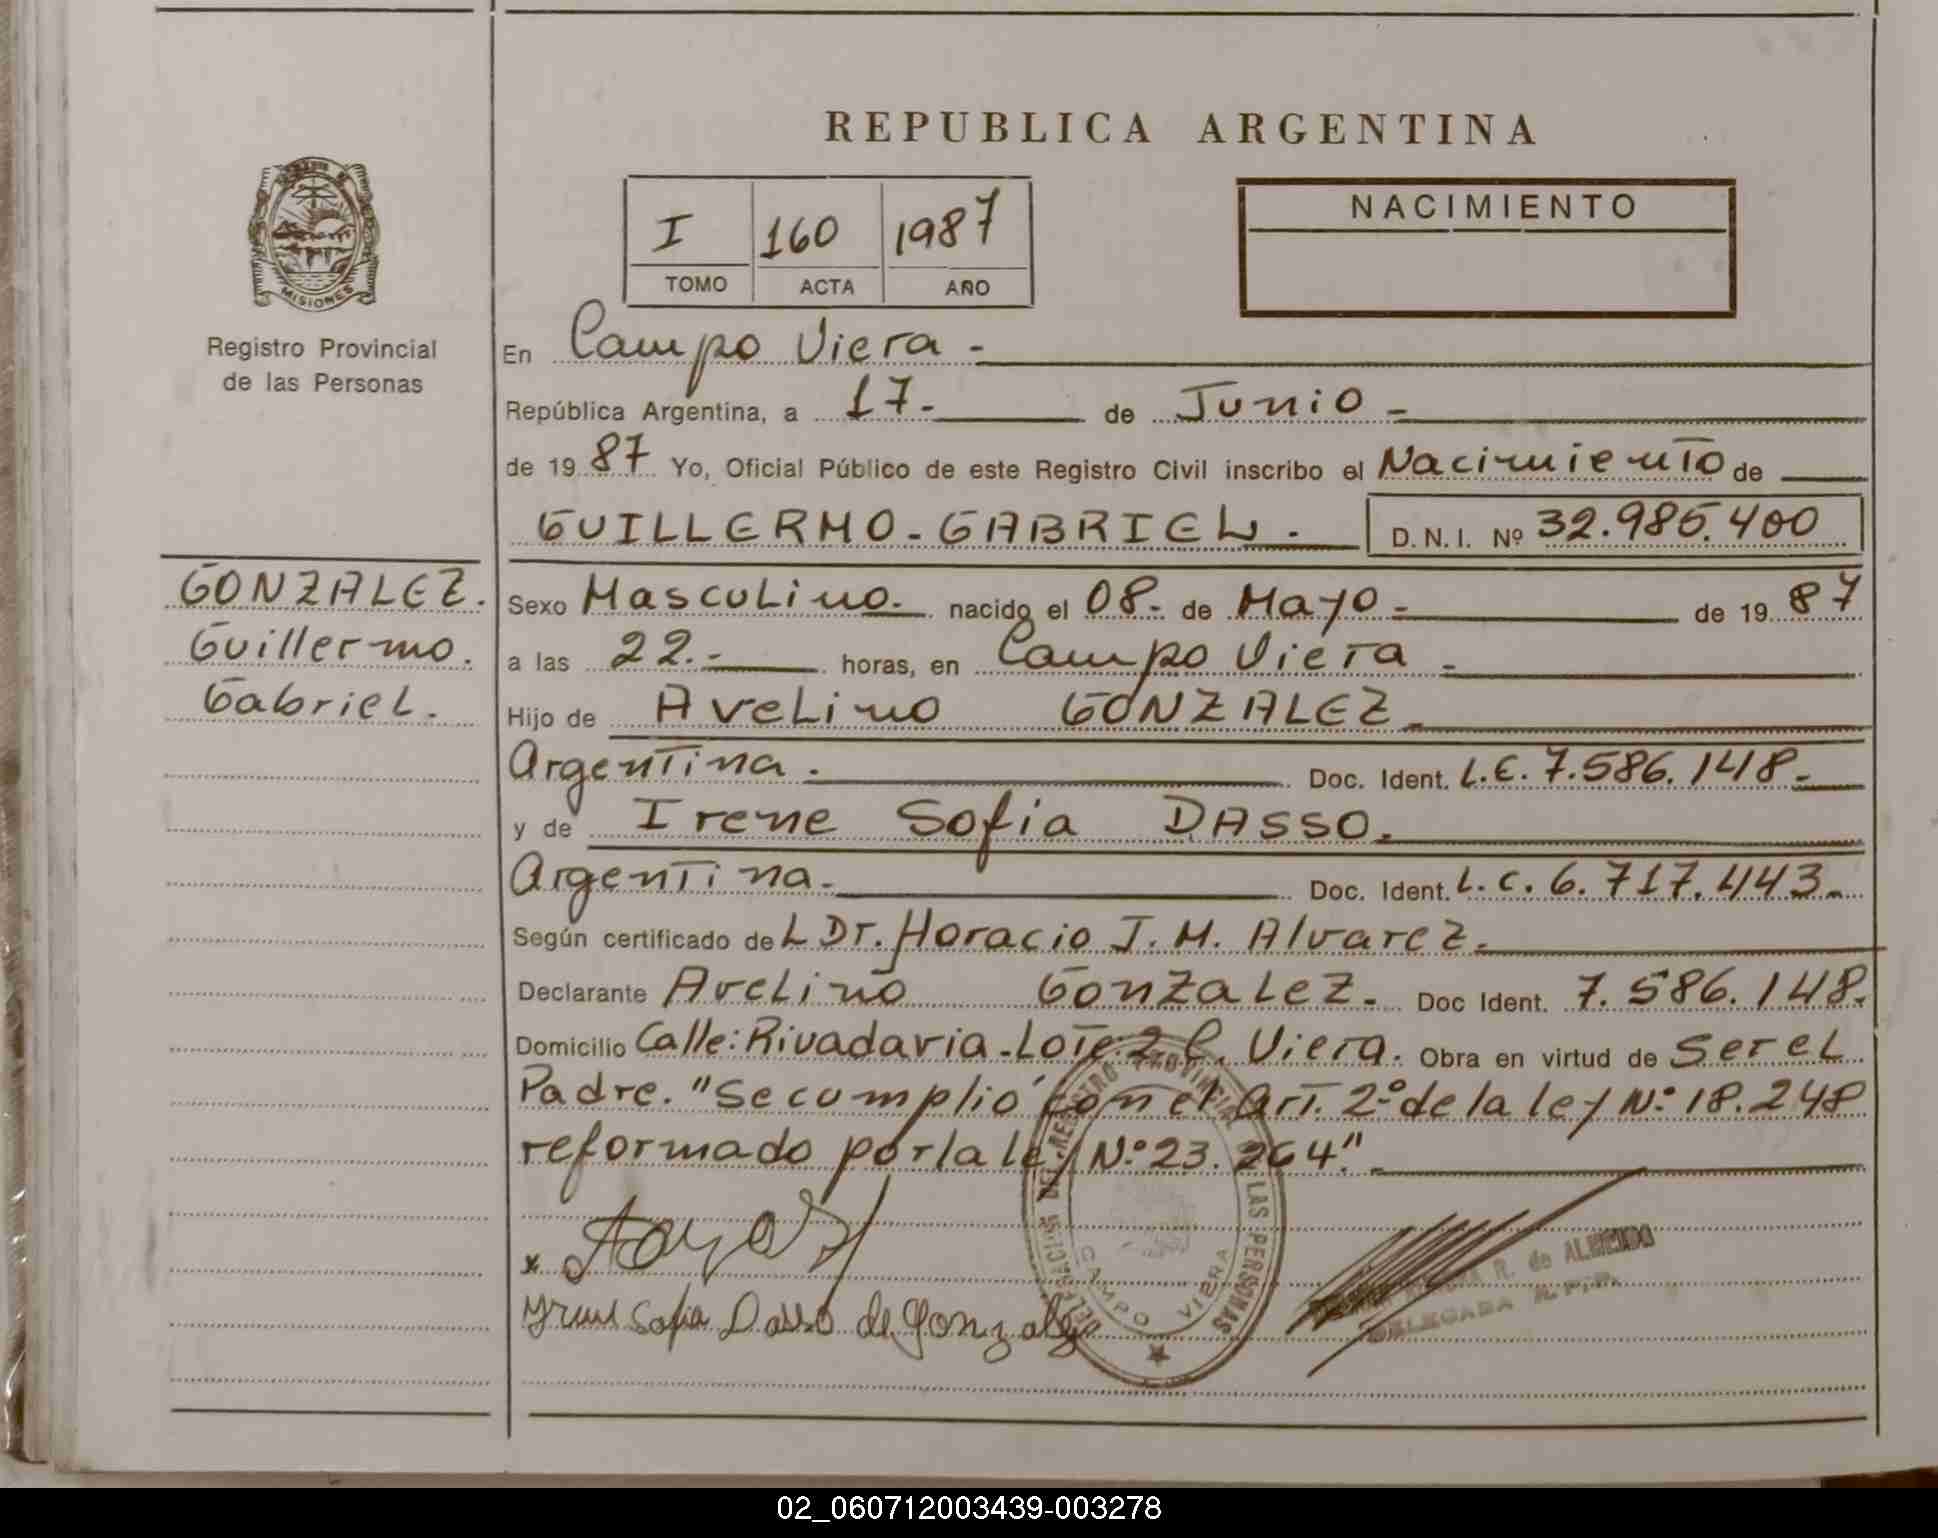 REPUBLICA ARGENTINA
I 160 1987
TOMO ACTA AÑO
NACIMIENTO
MISIONES
Registro Provincial
de las Personas
En Campo Viera -
República Argentina, a 17.- de Junio -
de 1987 Yo, Oficial Público de este Registro Civil inscribo el Nacimiento de
GUILLERMO - GABRIEL . - D.N.I. Nº 32.985.400
GONZALEZ.
Guillermo.
Gabriel.
Sexo Masculino. nacido el 08.- de Mayo - de 1987
a las 22.- horas, en Campo Viera -
Hijo de Avelino GONZALEZ.
Argentina . Doc. Ident. L.E. 7.586.148.-
y de Irene Sofia DASSO.
Argentina.- Doc. Ident. L.C. 6.717.443.-
Según certificado deL Dr. Horacio J. M. Alvarez.-
Declarante Avelino Gonzalez.- Doc Ident. 7.586.148.
Domicilio Calle: Rivadavia - Lote: 2 C. Viera. Obra en virtud de Ser el
Padre. "Se cumplió con el Art. 2º de la ley Nº 18.248
reformado por la ley Nº 23.264".-
DELEGACION DEL REGISTRO PROVINCIAL DE LAS PERSONAS
CAMPO VIERA
x
Sofia Dasso de Gonzalez
R. de ALMEIDO
DELEGADA R.P.P.
02_060712003439-003278